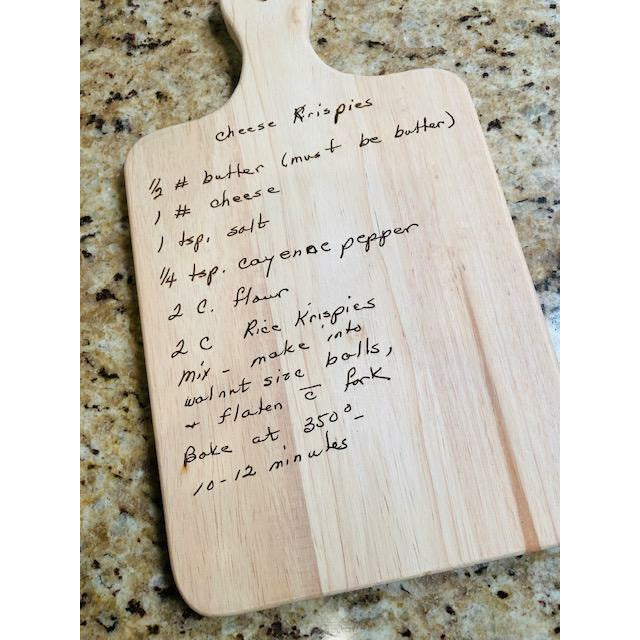 cheese Krispies
½ # butter (must be butter)
1 # cheese
1 tsp. salt
¼ tsp. cayenne pepper
2 C. flour
2 C Rice Krispies
Mix - make into
walnut size balls,
+ flaten c̄ fork
Bake at 350° -
10-12 minutes.